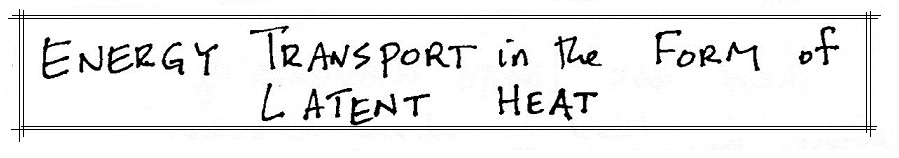 ENERGY TRANSPORT in the FORM of
LATENT HEAT